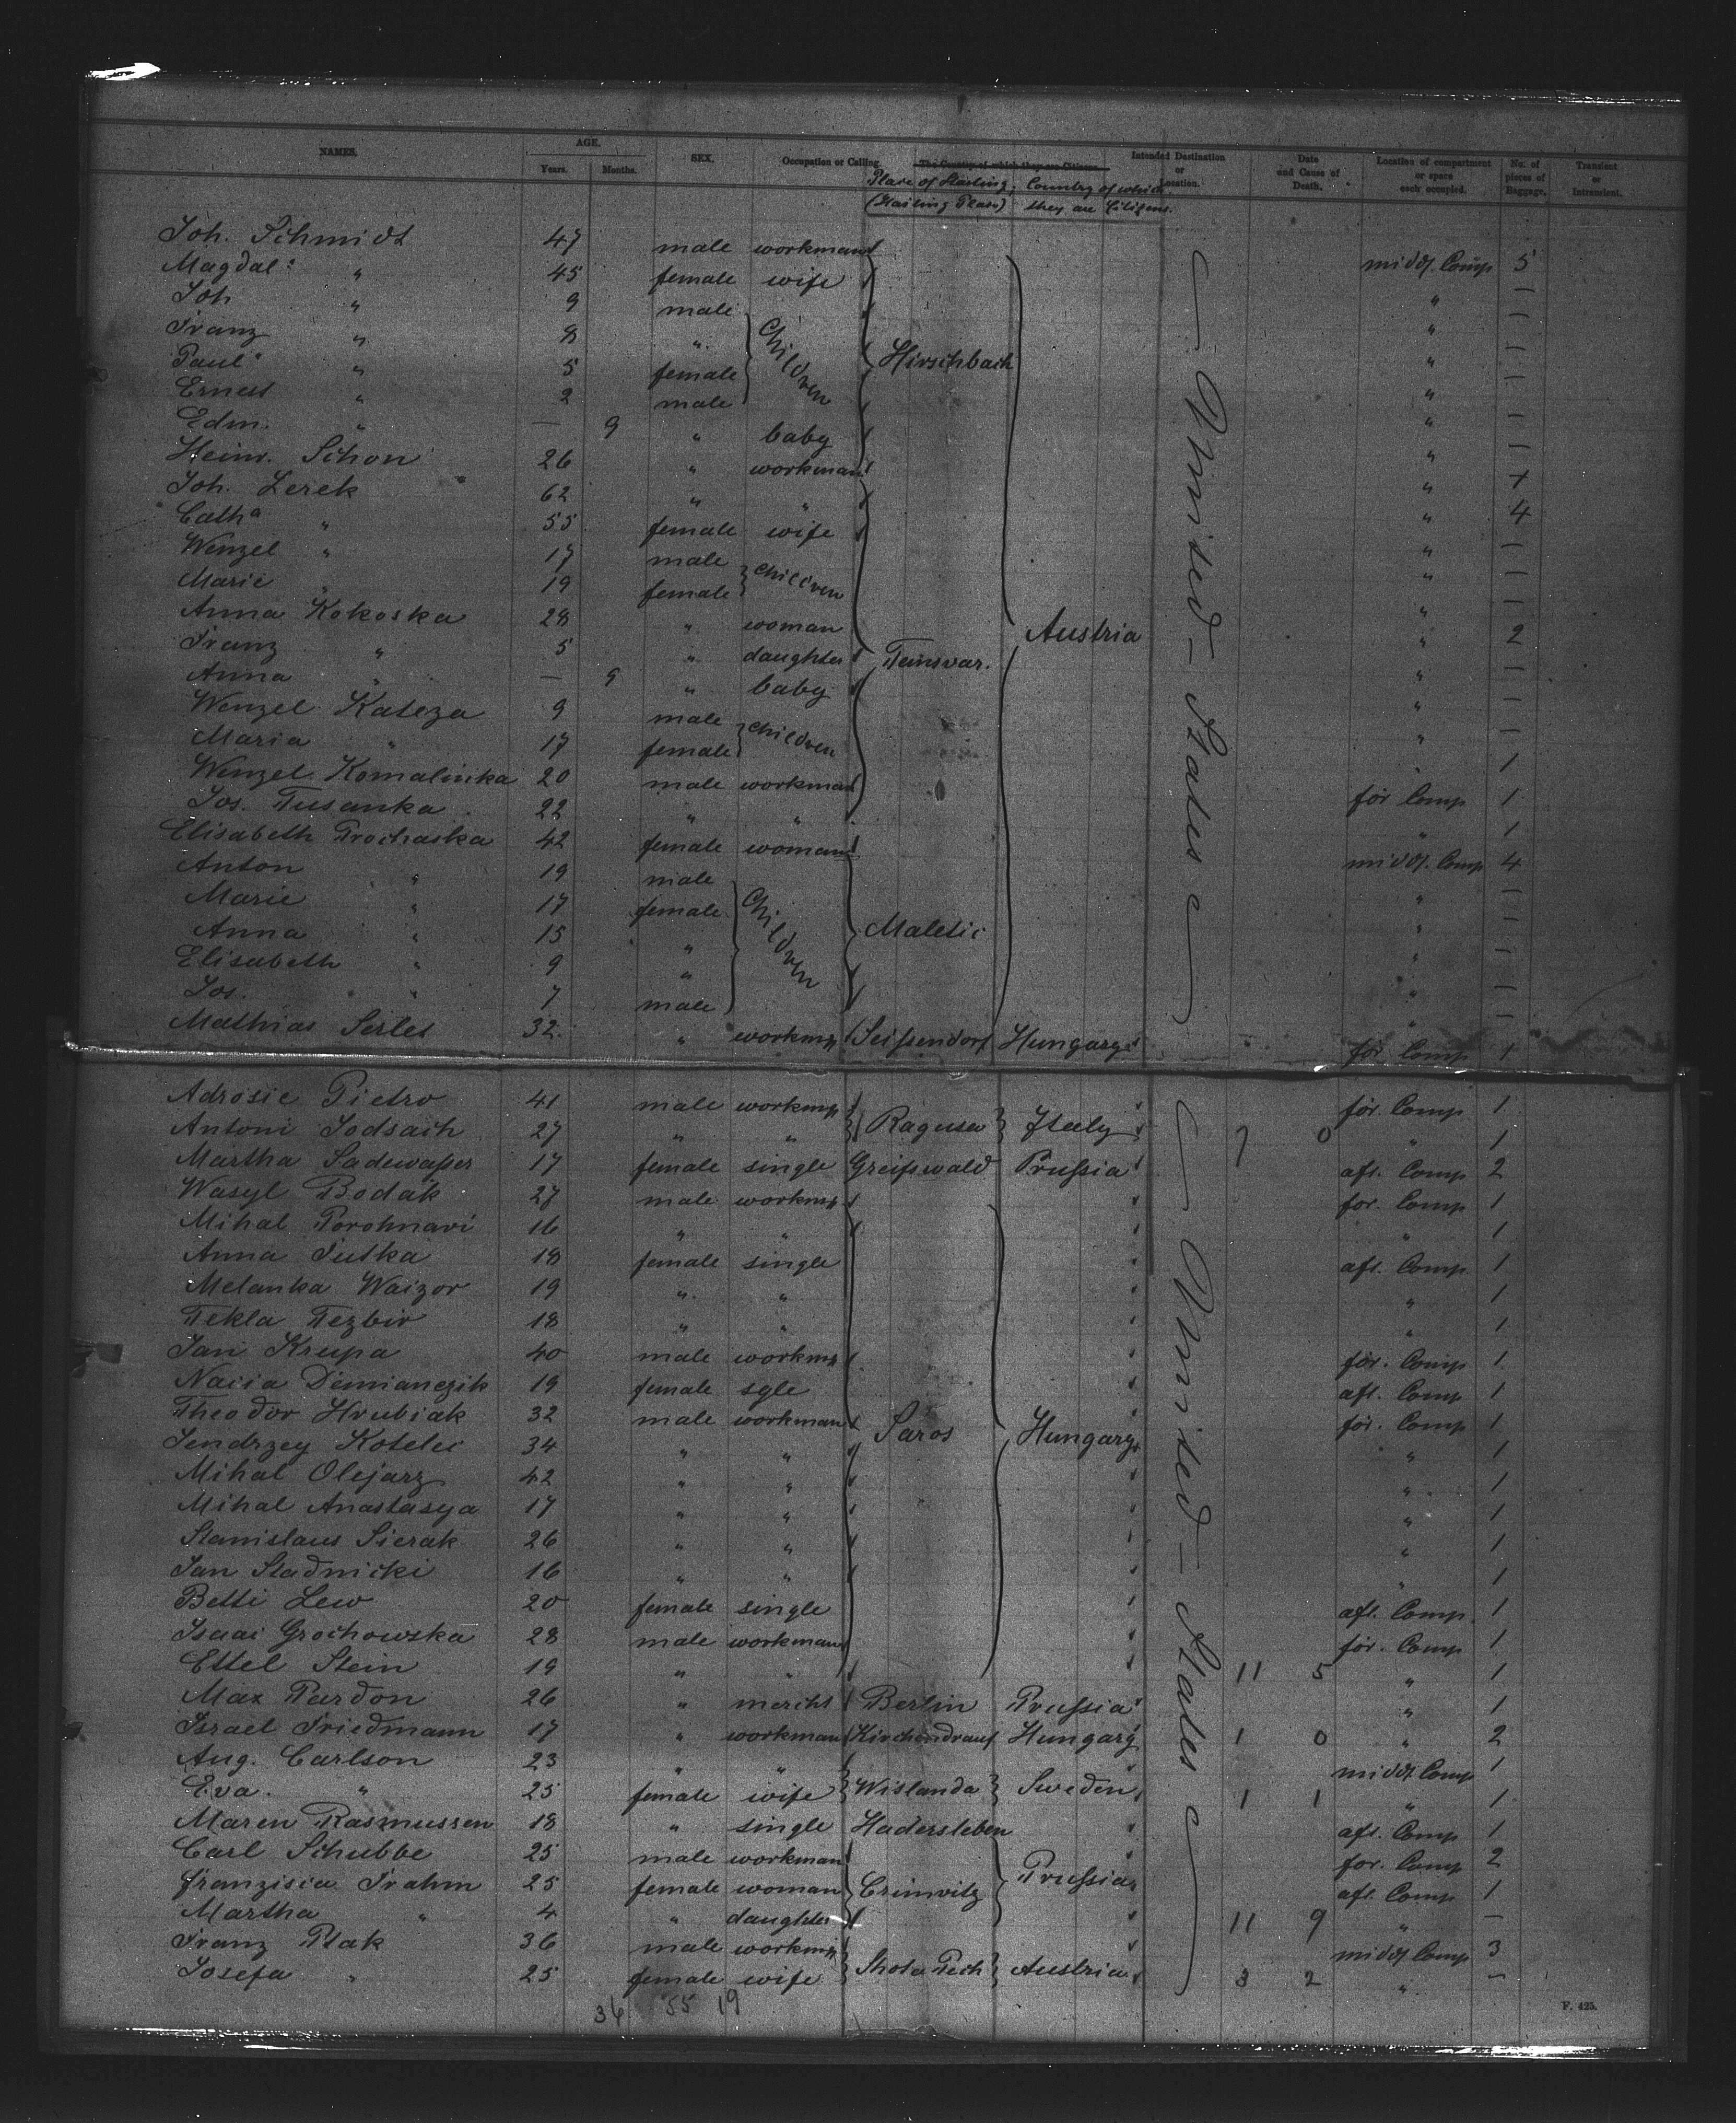 NAMES. AGE. SEX. Occupation or Calling. The Country of which they are Citizens. Intended Destination or Location. Date and Cause of Death. Location of compartment or space each occupied. No. of pieces of Baggage. Transient or Intransient.
Years. Months. Place of Starting, (Starting Place) Country of which they are Citizens.
Joh. Schmidt 47 male workman middl. Comp 5
Magdal: " 45 female wife " —
Joh " 9 male " —
Franz " 8 " Children " —
Paul " 5 female Hirschbach " —
Ernest " 2 male " —
Edm. " — 9 " baby " —
Heinr. Schon 26 " workman "
Joh. Lerek 62 " " " 4
Catha " 55 female wife " —
Wenzel " 17 male children " —
Marie " 19 female " —
Anna Kokoska 28 " woman Austria " 2
Franz " 5 " daughter Temsvar. " —
Anna " — 9 " baby " —
Wenzel Kateza 9 male children " —
Maria " 17 female 1
Wenzel Komalinka 20 male workman for Comp 1
Jos. Tusanka 22 " " " 1
Elisabeth Prochaska 42 female woman middl. Comp 4
Anton " 19 male " —
Marie " 17 female Children " —
Anna " 15 " Maletic " —
Elisabeth " 9 " " —
Jos. " 7 male " —
Mathias Serles 32 " workmn Seissendorf Hungary for Comp 1
United States
Adrosie Pietro 41 male workmn for. Comp 1
Antoni Sodsach 27 " " Ragusa Italy 7 0 " 1
Martha Sadewasser 17 female single Greifswald Prussia aft. Comp 2
Wasyl Bodak 27 male workmn for. Comp 1
Mihal Porohnavi 16 " " " 1
Anna Putka 18 female single aft. Comp 1
Melanka Waizor 19 " " " 1
Tekla Tezbir 18 " " " 1
Jan Krupa 40 male workmn for. Comp 1
Nacia Demianczik 19 female sgle aft. Comp 1
Theodor Hrubiak 32 male workman for. Comp 1
Jendrzey Kotelec 34 " " Saros Hungary " 1
Mihal Olejarz 42 " " " 1
Mihal Anastasya 17 " " " 1
Stanislaus Sierak 26 " " " 1
Jan Stadnicki 16 " " " 1
Betti Lew 20 female single aft. Comp 1
Isaac Grochowska 28 male workman for. Comp 1
Ettel Stein 19 " " 11 5 " 1
Max Pardon 26 " mercht Berlin Prussia " 1
Israel Friedmann 17 " workman Kirchendrauf Hungary 1 0 " 2
Aug. Carlson 23 " " middl Comp 1
Eva " 25 female wife Wislanda Sweden 1 1 " 1
Maren Rasmussen 18 " single Hadersleben aft. Comp 1
Carl Schubbe 25 male workman for. Comp 2
Franzisca Frahm 25 female woman Crinvitz Prussia aft. Comp 1
Martha " 4 " daughter 11 9 " —
Franz Ptak 36 male workmn middl Comp 3
Josefa " 25 female wife Austria 3 2 " —
United States
36 55 19
F. 425.